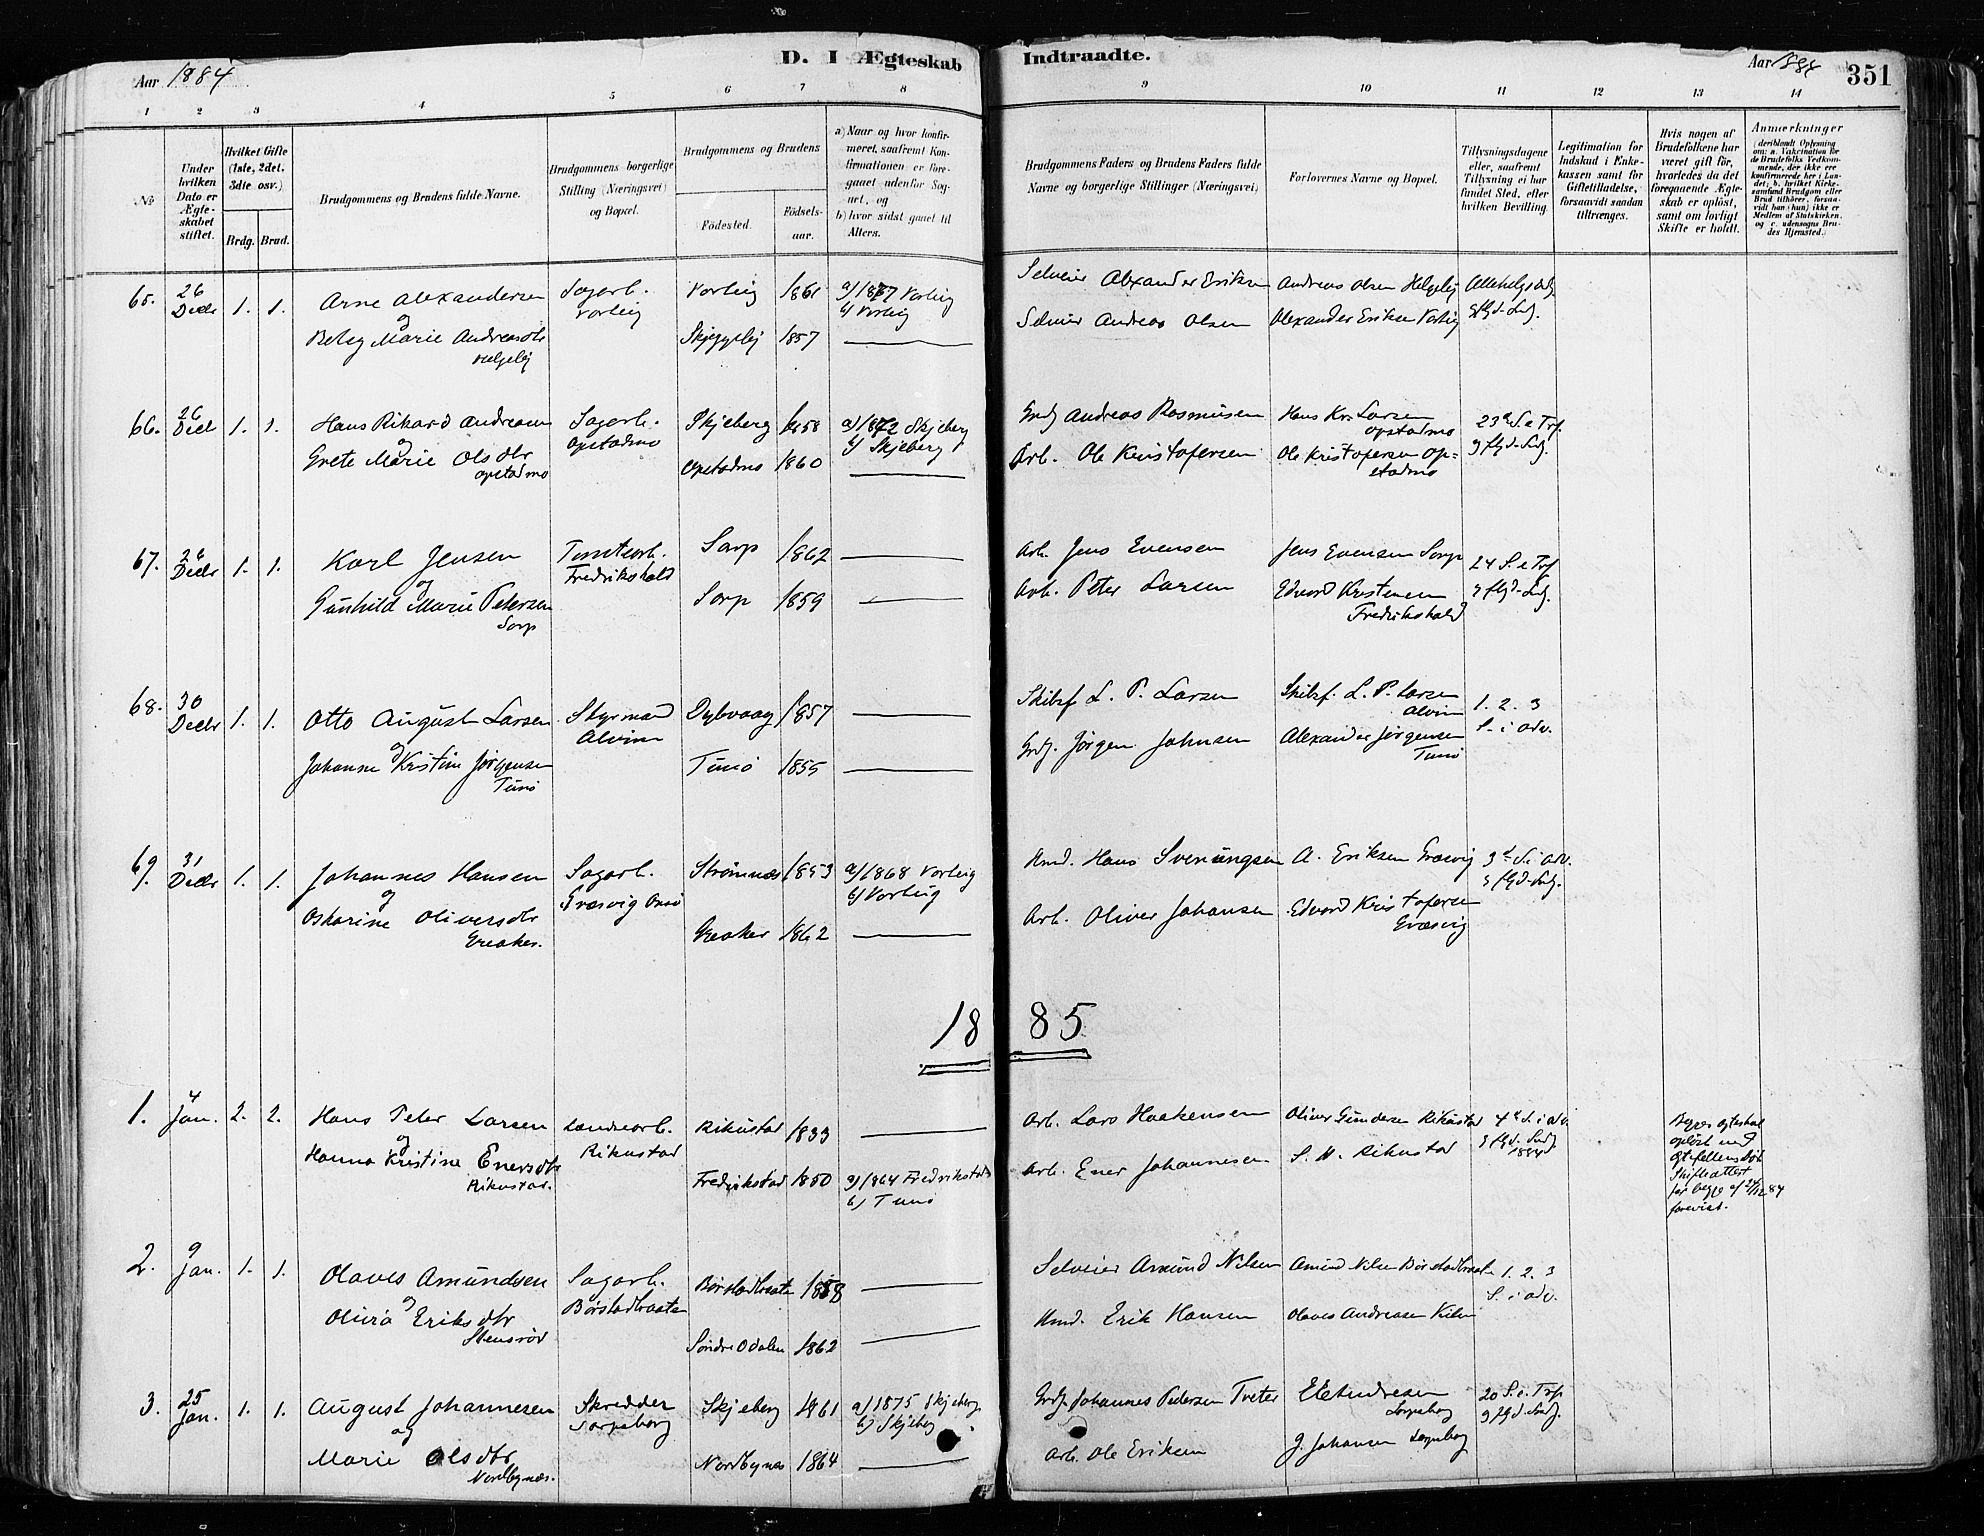 Aar 1884
D. I Ægteskab Indtraadte.
Aar 1884 351
1 2 3 4 5 6 7 8 9 10 11 12 13 14
No
Under hvilken Dato er Ægteskabet stiftet.
Hvilket Gifte (1ste, 2det, 3die osv.)
Brdg. Brud.
Brudgommens og Brudens fulde Navne.
Brudgommens borgerlige Stilling (Næringsvei) og Bopæl.
Brudgommens og Brudens
Fødested.
Fødselsaar.
a) Naar og hvor konfirmeret, saafremt Konfirmationen er foregaaet udenfor Sognet, og
b) hvor sidst gaaet til Alters.
Brudgommens Faders og Brudens Faders fulde Navne og borgerlige Stillinger (Næringsvei)
Forlovernes Navne og Bopæl.
Tillysningsdagene eller, saafremt Tillysning ei har fundet Sted, efter hvilken Bevilling.
Legitimation for Indskud i Enkekassen samt for Giftetilladelse, forsaavidt saadan tiltrænges.
Hvis nogen af Brudefolkene har været gift før, hvorledes da det foregaaende Ægteskab er opløst, samt om lovligt Skifte er holdt.
Anmærkninger (deriblandt Oplysning om: a. Vakcination for de Brudefolks Vedkommende, der ikke ere konfirmerede her i Landet; b. hvilket Kirkesamfund Brudgom eller Brud tilhører, forsaavidt han (hun) ikke er Medlem af Statskirken, og c. udensogns Brudes Hjemsted.)
65. 26 Decbr 1. 1. Arne Alexandersen Sagarb. Vorleig Vorleig 1861 a) 1877 Vorleig b) Vorleig Selveier Alexander Eriksen Andreas Olsen Helgelej
og
Betsy Marie Andreasdtr Helgelej Skjeggelej 1857 Selveier Andreas Olsen Alexander Eriksen Vorleig
66. 26 Decb 1. 1. Hans Rikard Andreasen Sagarb. Opstadmo Skjeberg 1858 a) 1872 Skjeberg b) Skjeberg Grdj Andreas Rasmusen Hans Kr. Larsen Opstadmo 23de S. e Trf. 3 flgd. Sndg.
og
Grete Marie Olsdtr Opstadmo Opstadmo 1860 Arb. Ole Kristofersen Ole Kristofersen Opstadmo
67. 26 Decbr 1. 1. Karl Jensen Tomtearb. Fredrikshald Sarp 1862 Arb. Jens Evensen Jens Evensen Sarp 24 S. e Trf
og
Gunhild Marie Petersen Sarp Sarp 1859 Arb. Peter Larsen Edvard Kristensen Fredrikshald
68. 30 Decbr 1. 1. Otto August Larsen Styrmand Alvim Dybvaag 1857 Skibsf. L. P. Larsen Skibsf. L. P. Larsen Alvim 1. 2. 3 S. i adv.
og
Johanne Kristine Jørgensen Tunø Tunø 1855 Grdj. Jørgen Johnsen Alexander Jørgensen Tunø
69. 31 Decbr 1. 1. Johannes Hansen Sagarb. Græsvig Onsø Strømnæs 1853 a) 1868 Vorleig b) Vorleig Hmd. Hans Sveningsen A. Eriksen Græsvig 3d S. i adv.
og
Oskarine Oliversdtr Greaker. Greaker 1862 Arb. Oliver Johansen Edvard Kristofersen Græsvig
1885
1. 4 Jan. 2. 2. Hans Peter Larsen Landearb. Rikustad Rikustad 1833 Arb. Lars Haakensen Oliver Gundersen Rikustad 4d S. i adv. 1884
og
Hanna Kristine Enersdtr Rikustad. Fredrikstad 1850 a) 1864 Fredrikstad b) Tunø Arb. Ener Johannesen S. M. Rikustad
Begges Egteskab opløst ved Egtefellens Død Skifteattest for begge af 24/12 84 forevist.
2. 9 Jan. 1. 1. Olaves Amundsen Sagarb. Børstadbraaten Børstadbraaten 1858 Selveier Amund Nilsen Amund Nilsen Børstadbraaten 1. 2. 3 S. i adv.
og
Olivia Eriksdtr Stensrød Søndre Odalen 1862 Hmd. Erik Hansen Olaves Andreasen
3. 25 Jan. 1. 1. August Johannesen Skredder Sarpsborg Skjeberg 1861 a) 1875 Skjeberg. b) Skjeberg Grdj. Johannes Pedersen Tveter Andresen Sarpsborg 20 S. e. Trf.
og
Marie Olsdtr Nordbynæs. Nordbynæs 1864 Arb. Ole Eriksen J. Johansen Sarpsborg